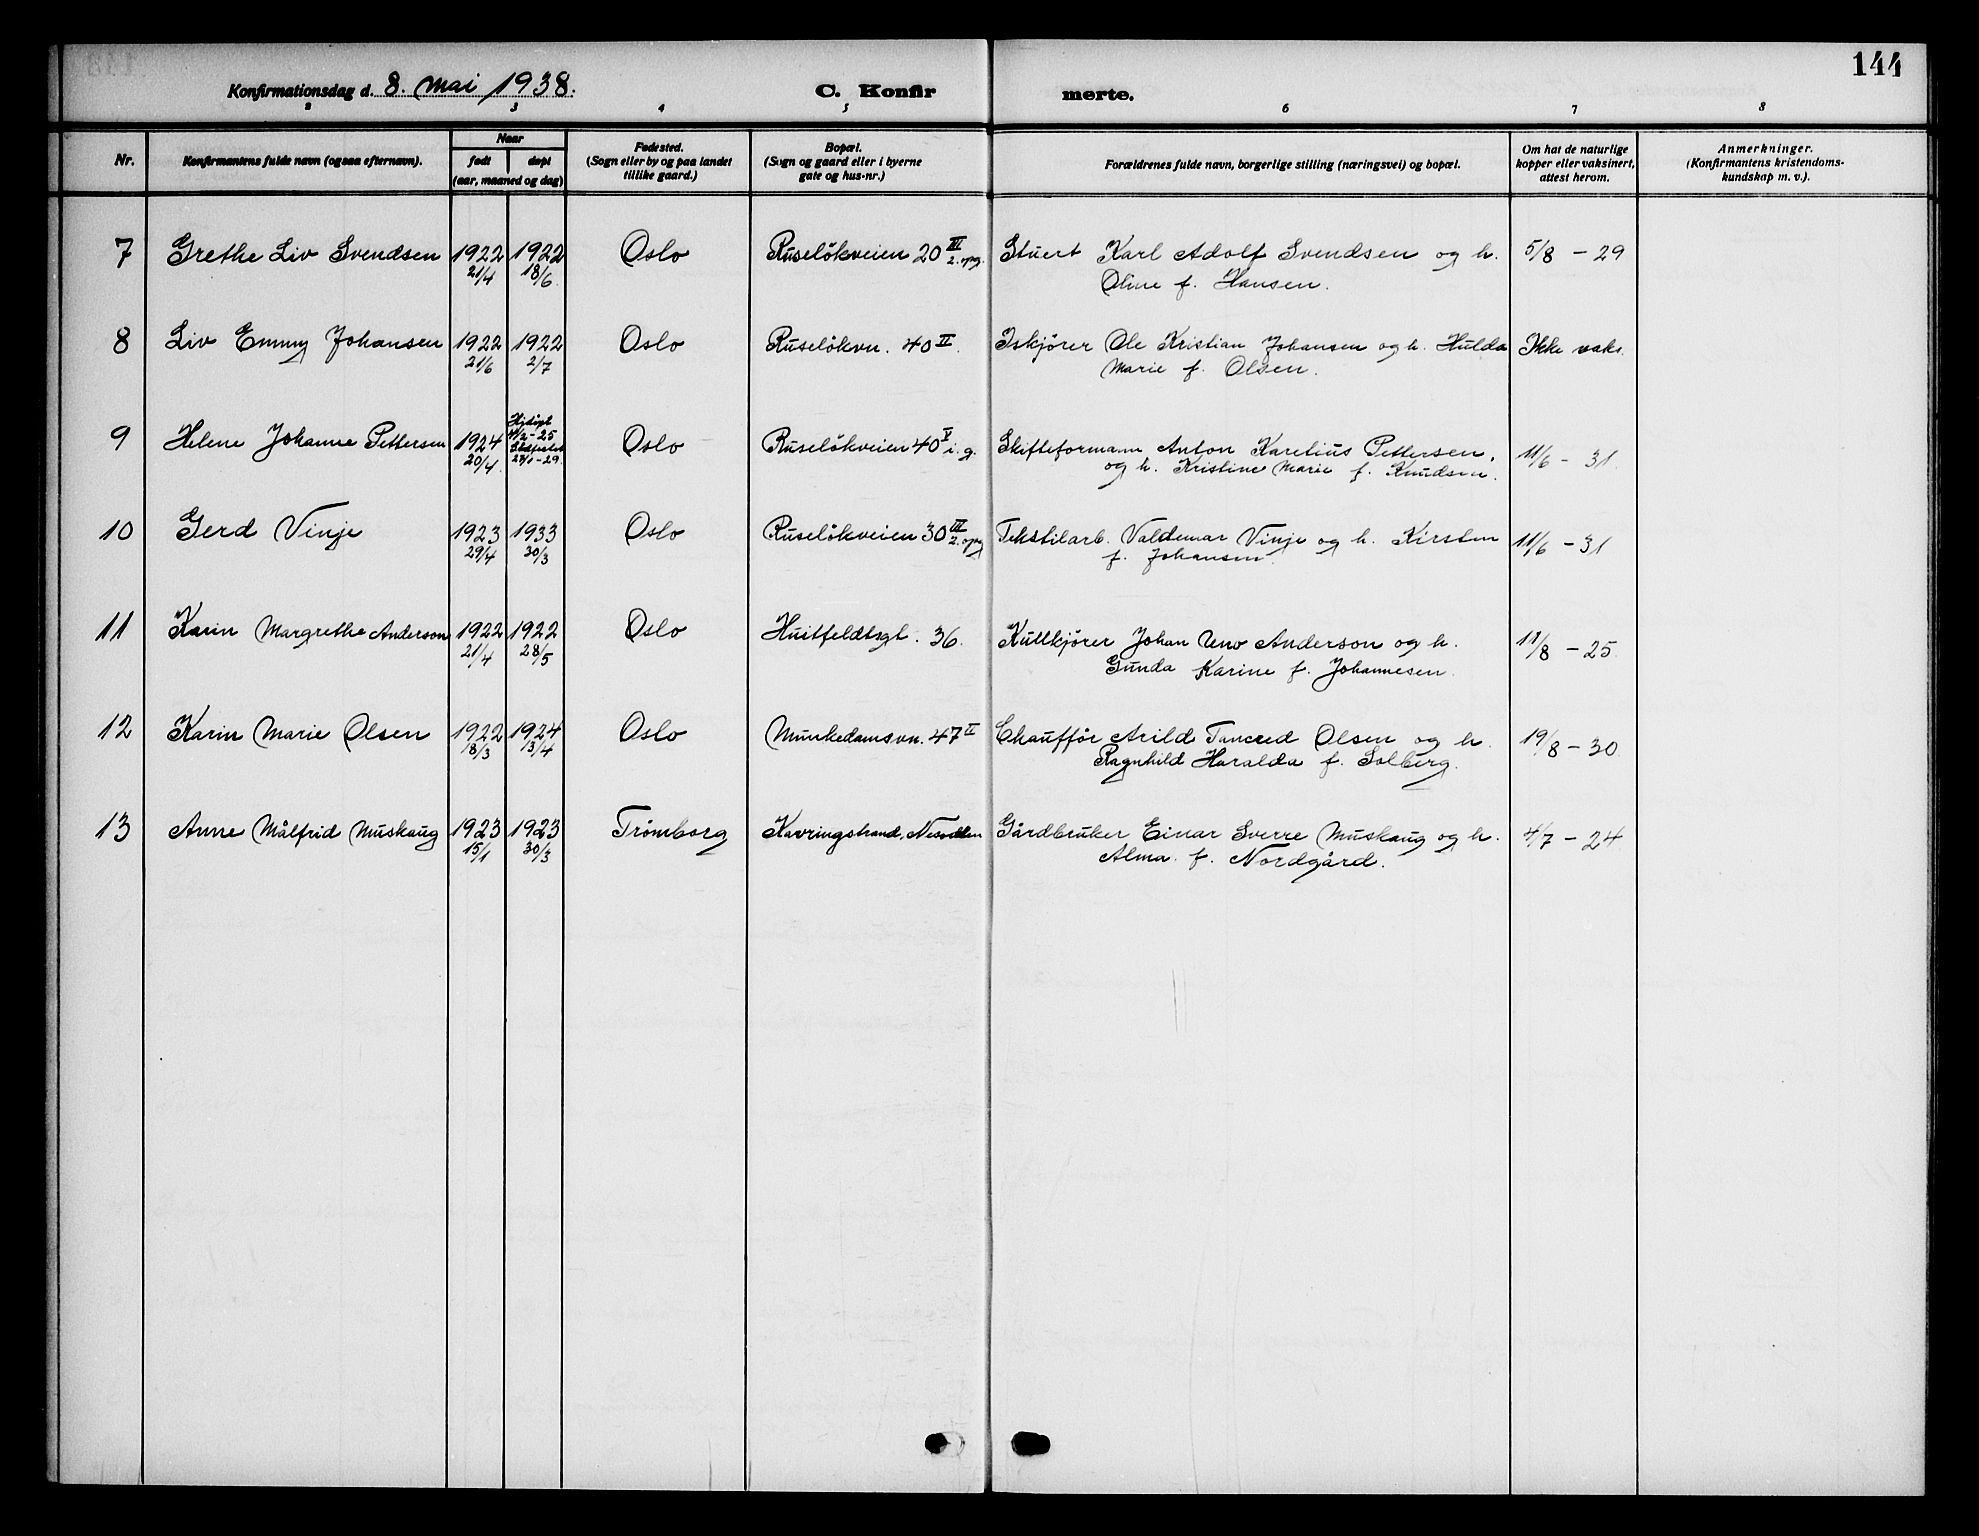 144
Konfirmationsdag d. 8. Mai 1938. C. Konfir merte.
2 3 4 5 6 7 8
Nr.
Konfirmantens fulde navn (ogsaa efternavn).
Naar
født døpt
(aar, maaned og dag)
Fødested.
(Sogn eller by og paa landet
tillike gaard.)
Bopæl.
(Sogn og gaard eller i byerne
gate og hus-nr.)
Forældrenes fulde navn, borgerlige stilling (næringsvei) og bopæl.
Om hat de naturlige
kopper eller vaksinert,
attest herom.
Anmerkninger.
(Konfirmantens kristendoms-
kundskap m. v.).
7 Grethe Liv Svendsen 1922 1922 Oslo Ruseløkveien 20 III Stuert Karl Adolf Svendsen og h. 5/8 - 29
21/4 18/6. 2. opg. Oline f. Hansen.
8 Liv Emmy Johansen 1922 1922 Oslo Ruseløkvn. 40 II. Iskjører Ole Kristian Johansen og h. Hulda Ikke vaks.
21/6 2/7 Marie f. Olsen.
9 Helene Johanne Pettersen 1924 Hjdøpt Oslo Ruseløkveien 40 V i. g. Skifteformann Anton Karelius Pettersen. 11/6 - 31.
20/4. 4/2-25 og h. Kristine Marie f. Knudsen.
23/1-29.
10 Gerd Vinje 1923 1933 Oslo Ruseløkveien 30 III Tekstilarb. Valdemar Vinje og h. Kirsten 11/6 - 31
29/4 30/3 2. opg f. Johansen.
11 Karin Margrethe Anderson 1922 1922 Oslo Huitfeldtsgt. 36. Kullkjører Johan Uno Anderson og h. 11/8 - 25.
21/4 28/5 Gunda Karine f. Johannesen.
12 Karin Marie Olsen 1922 1924 Oslo Munkedamsvn. 47 II Chauffør Arild Tancred Olsen og h. 19/8 - 30.
18/3 13/4 Ragnhild Haralda f. Solberg.
13 Anne Målfrid Muskaug 1923 1923 Trømborg Kavringstrand, Nesodden Gårdbruker Einar Sverre Muskaug og h. 4/7 - 24
15/1 30/3 Alma. f. Nordgård.